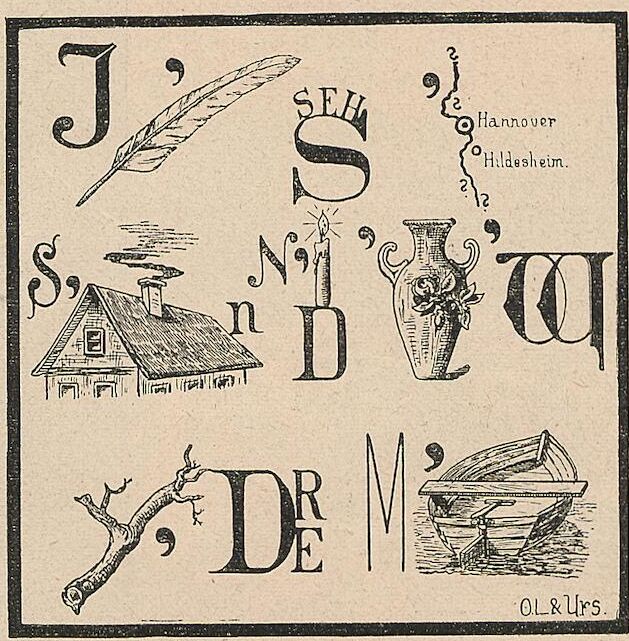 J '
SEH
S
'
Hannover
Hildesheim.
S, n
N' D ' '
W
, D RE
M '
O.L & Urs.